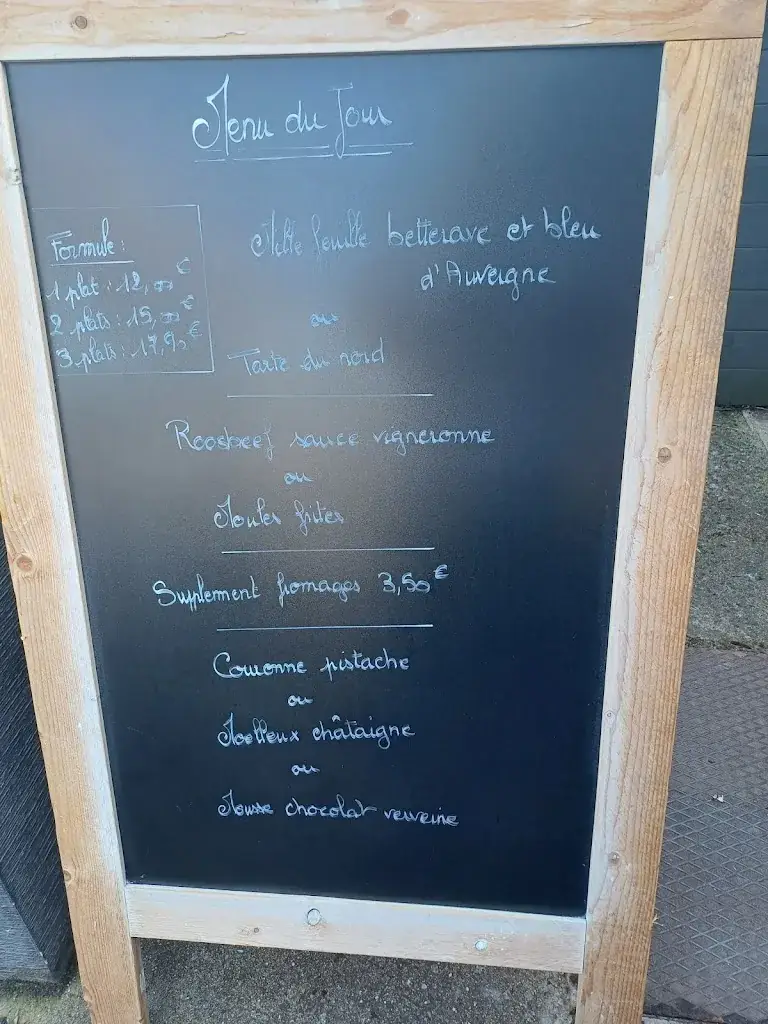 Menu du Jour
Formule :
1 plat : 12,00€
2 plats : 15,00€
3 plats : 17,90€
Mille feuille betterave et bleu
d'Auvergne
ou
Tarte du nord
Roosbeef sauce vigneronne
ou
Moules frites
Supplement fromages 3,50€
Couronne pistache
ou
Moelleux châtaigne
ou
Mousse chocolat verveine